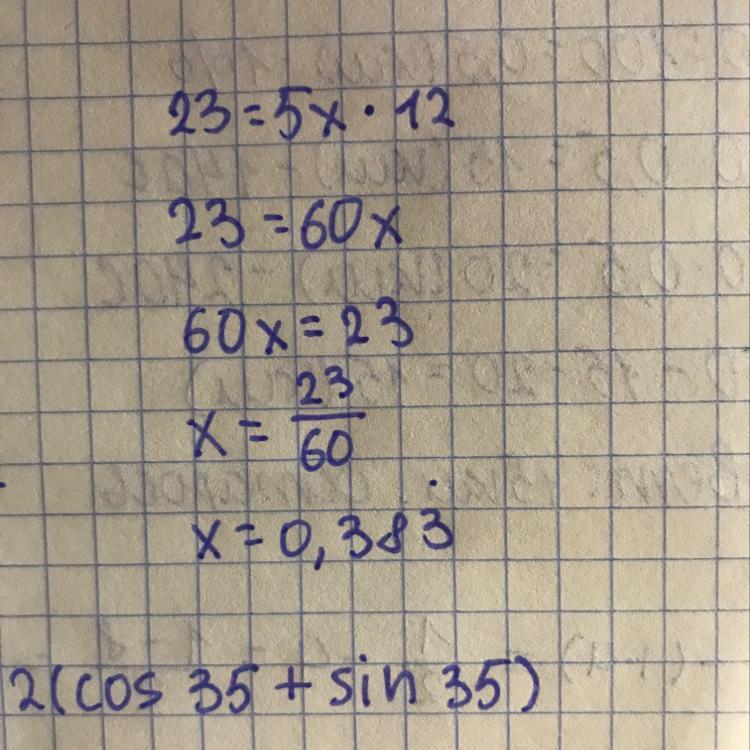 23 = 5x · 12
23 = 60x
60x = 23
x = 23/60
x = 0,383̇
2(cos 35 + sin 35)